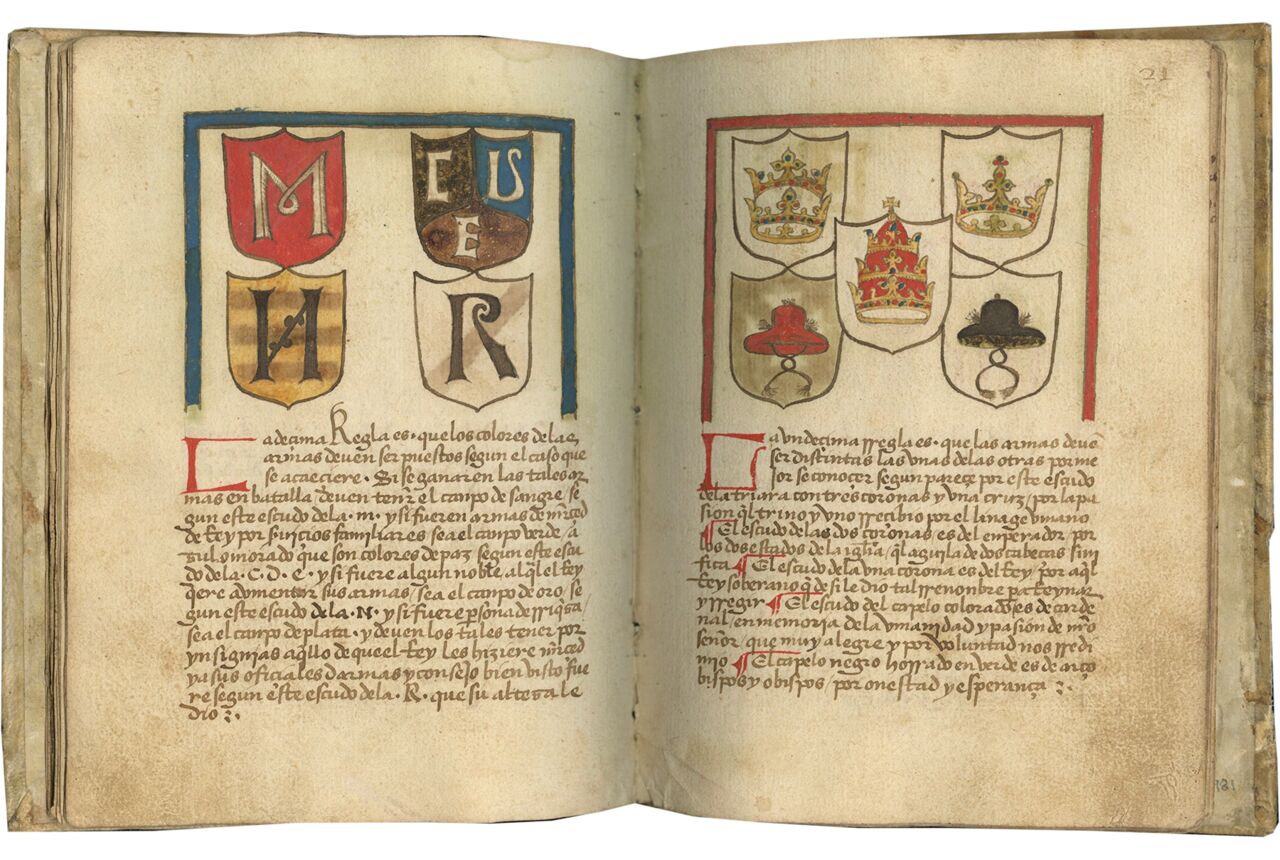 M
C
U
E
N
R
La decima Regla es · que los colores de las
armas deven ser puestos segun el caso que
se acaeciere · Si se ganaren las tales ar
mas en batalla deven tener el canpo de sangre / se
gun este escudo dela · m · y si fueren armas de mrced
de Rey por seruicios familiares sea el canpo verde / a
zul o morado que son colores de paz segun este escu
do dela · C · D · E · y si fuere algun noble al ql el Rey
qere avmentar sus armas / sea el canpo de oro / se
gun este escudo dela · N · y si fuere psona de rriqza /
sea el canpo de plata · y deven los tales tener por
ynsignias aqllo de que el Rey les hiziere mrced
y a sus oficiales darmas y consejo bien visto fue
re segun este escudo dela · R · que su alteza le
dio :·
21
La vndecima rregla es · que las armas deuē
ser distintas las vnas delas otras por me
jor se conoçer segun pareçe por este escudo
dela triara con tres coronas y vna cruz / por la pa
sion ql trino y vno rrecibio por el linage vmano
¶ El escudo delas dos coronas es del enperador / por
los dos estados dela iglia / ql aguila de dos cabecas sini
fica ¶ El escudo dela vna corona es del Rey / por aql
Rey soberano q de si le dio tal rrenonbre pa Reynar
y rregir ¶ El escudo del capelo colorado es de carde
nal / en memoria dela vmanidad y pasion de nro
señor / que muy alegre y por voluntad nos rredi
mio ¶ El capelo negro horrado en verde es de arço
bispos y obispos / por onestad y esperança :·
181